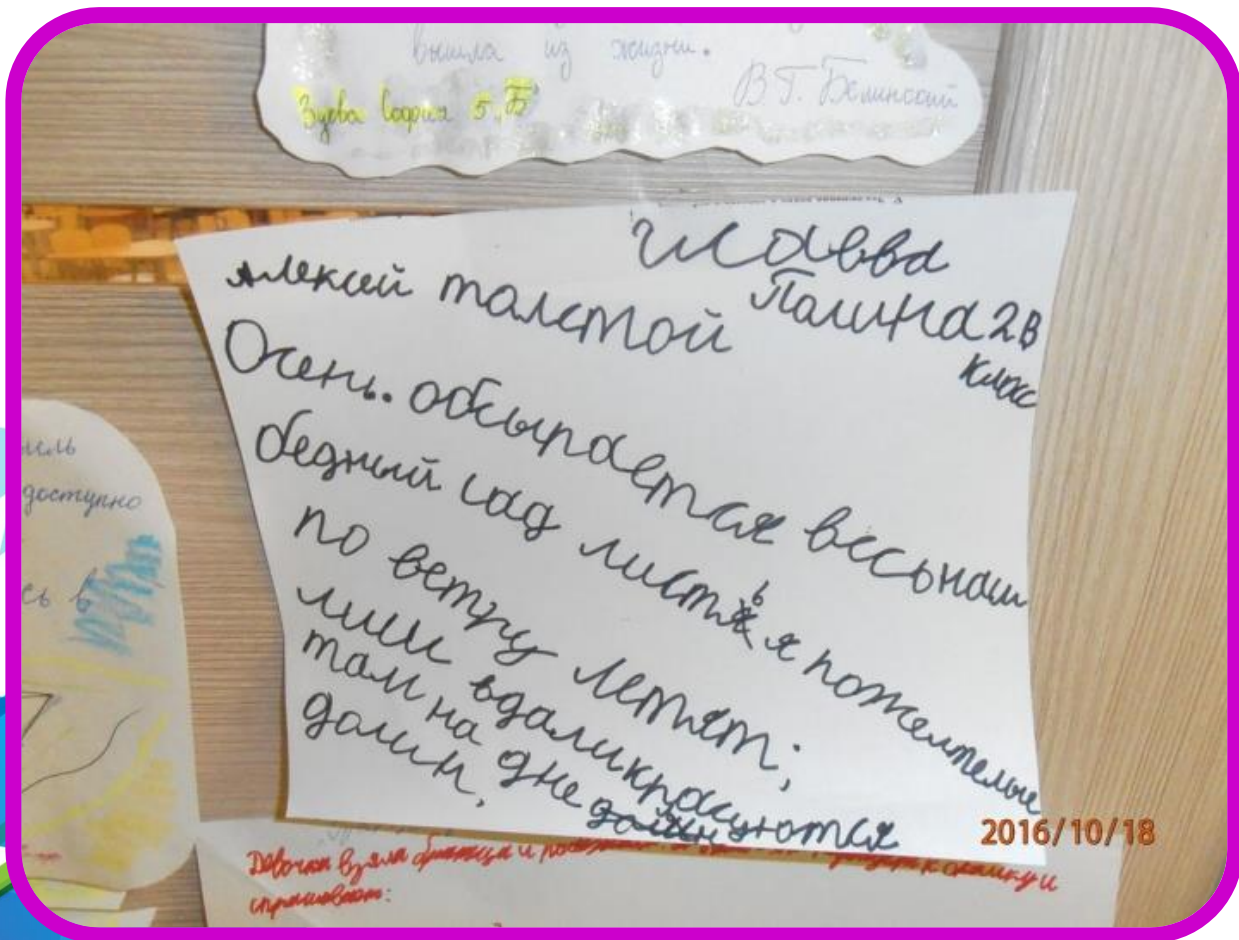 вышла из жизни.
В.Г. Белинский
Зуева София 5„Б"
Главва
Полина 2В
класс
Алексей талстой
Осень. обсыпается весь наш
бедный сад листья пожелтелые
по ветру летят;
лиш вдали красуются
там, на дне долин
долин,
иль
доступно
сь в
Девочка взяла братца и
к
и
спрашивает:
2016/10/18